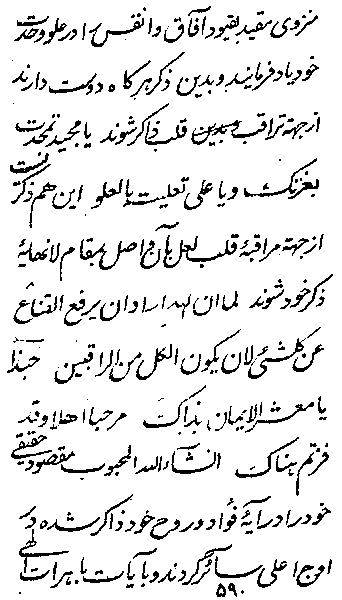 منزوی مقید بقیود آفاق و انفس را در علو وحدت
خود یاد فرمایند و بدین ذکر هر گاه دوست دارند
از جهة تراقب قلب ذاکر شوند یا مجید تمجدت
بعزتک و یا علی تعلیت بالعلو این هم ذکریست
از جهة مراقبهٔ قلب لعل بآن واصل بمقام لانهایهٔ
ذکر خود شوند لما ان الله اراد ان یرفع القناع
عن کلشئ لان یکون الکل من الراقبین حبذا
یا معشر الایمان بذاک مرحبا اهلا وقد
فزتم هناک انشاء الله المحبوب مقصود حقیقی
خود را در آیهٔ فؤاد و روح خود ذاکر شده در
اوج اعلی سائر گردند و بآیات باهرات الهی
۵۹۰